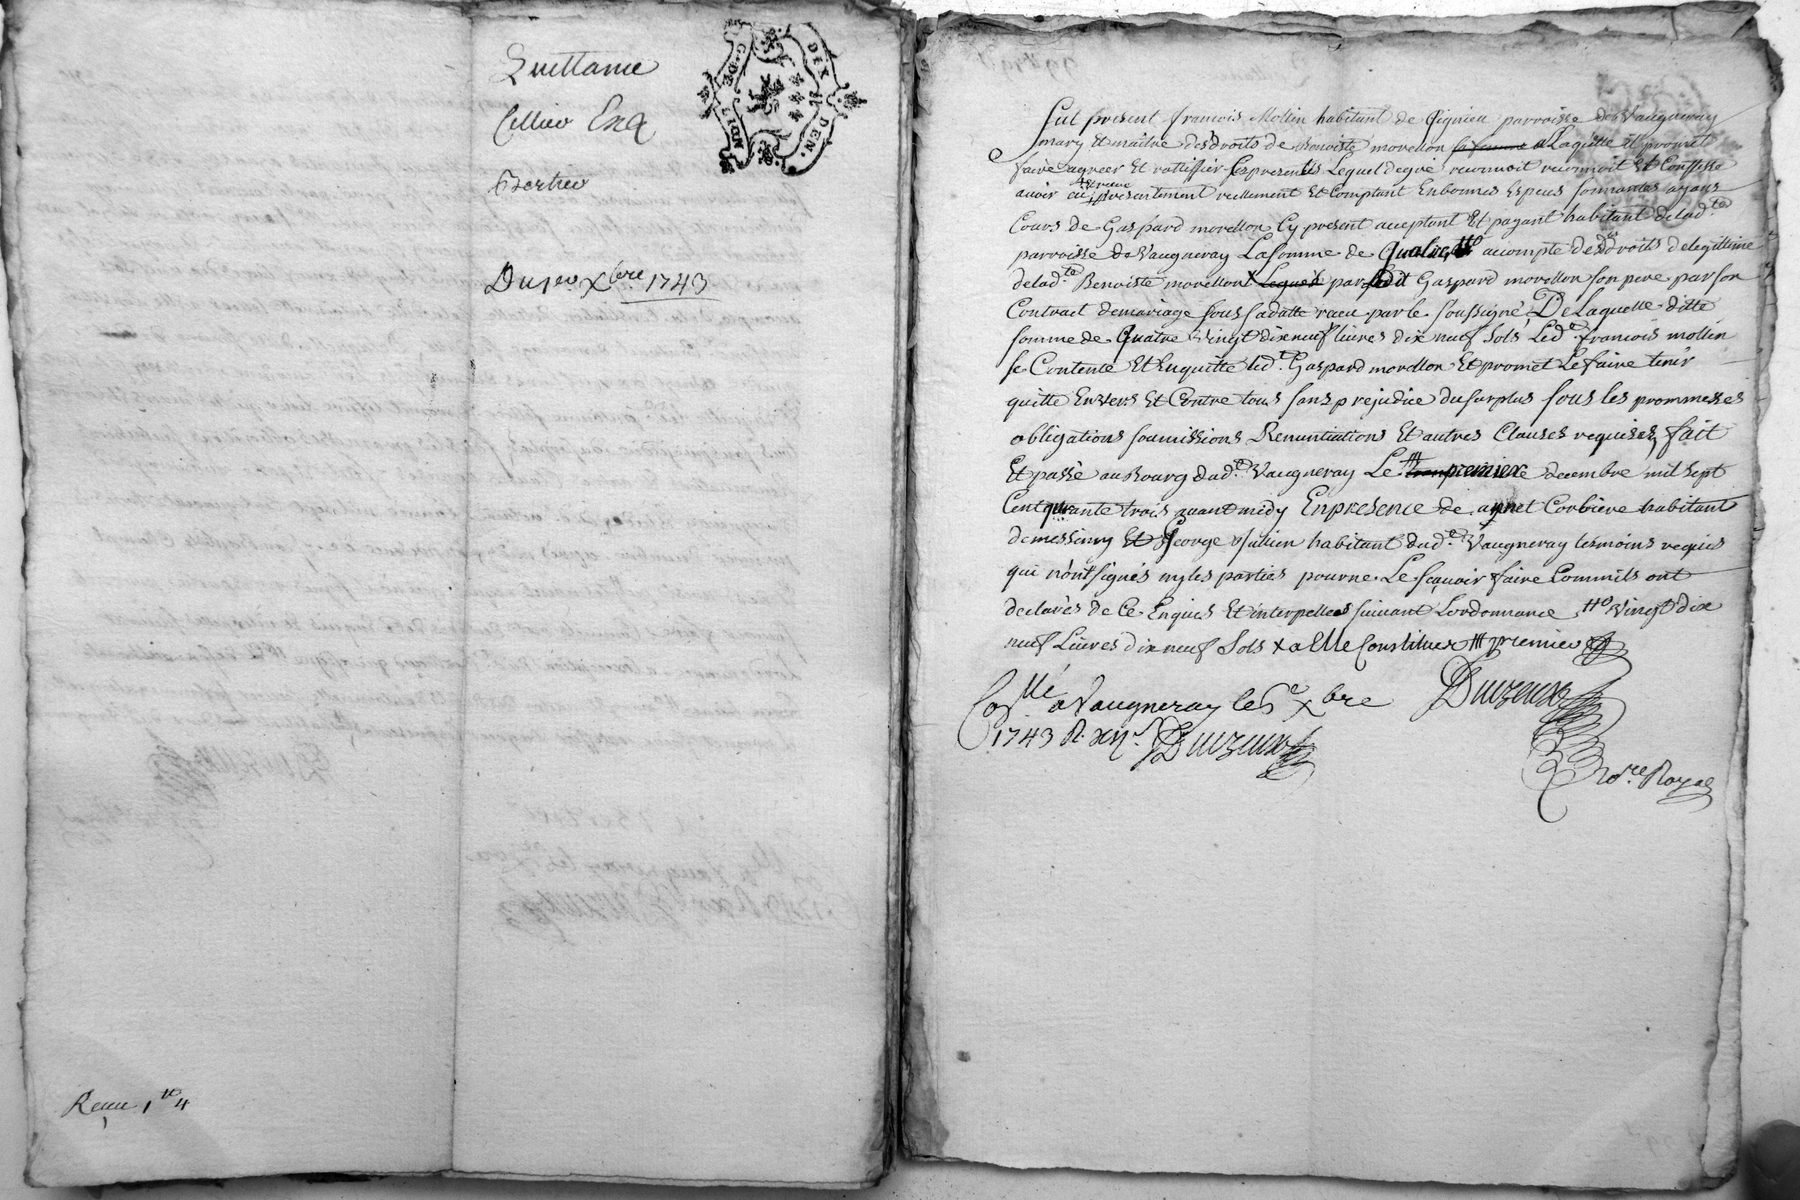 Quittance
Cellier Exa
Bertier
Du 1er Xbre 1743
G. DE LION
DIX II DEN.
Receu 1 tt 4
fut present francois Mollin habitant de parroisse de Vaugneray
mary Et maitre des droits de Benoiste morellon sa femme a Laquelle il promet
faire agreer Et rattiffier Ces presentes Lequel de gré reconnoit Et Confesse
avoir eü Et receu presentement reellement Et Comptant En bonnes Especes sonnantes ayans
Cours de Gaspard morellon Cy present acceptant Et payant habitant de lad.te
parroisse de Vaugneray La somme de Quatre tto acompte des droits de legittime
de lad.te Benoiste morellon X Leguée par ledit Gaspard morellon son pere par son
Contract de mariage sous sa datte receu par le soussigné, De Laquelle ditte
somme de Quatre Vingt dix neuf livres dix neuf sols Led.t francois mollin
se Contente Et En quitte led.t Gaspard morellon Et promet Le faire tenir
quitte Envers Et Contre tous sans prejudice du surplus sous les prommesses
obligations soumissions Renuntiations Et autres Clauses requises, fait
Et passé au Bourg dud.t Vaugneray Le ttt premier decembre mil sept
Cent quarante trois avant midy En presence de aynet Corbiere habitant
de messimy Et George Julien habitant dud.t Vaugneray tesmoins requis
qui n'ont signés ny les parties pour ne Le sçavoir faire Comm'ils ont
declarés de Ce Enquis Et interpellés suivant Lordonnance tto Vingt dix
neuf Livres dix neuf Sols X a Elle Constituée ttt premier
Duizeux
Con.llé a Vaugneray le 6e Xbre
1743 R. Duizeux
no.re Royal